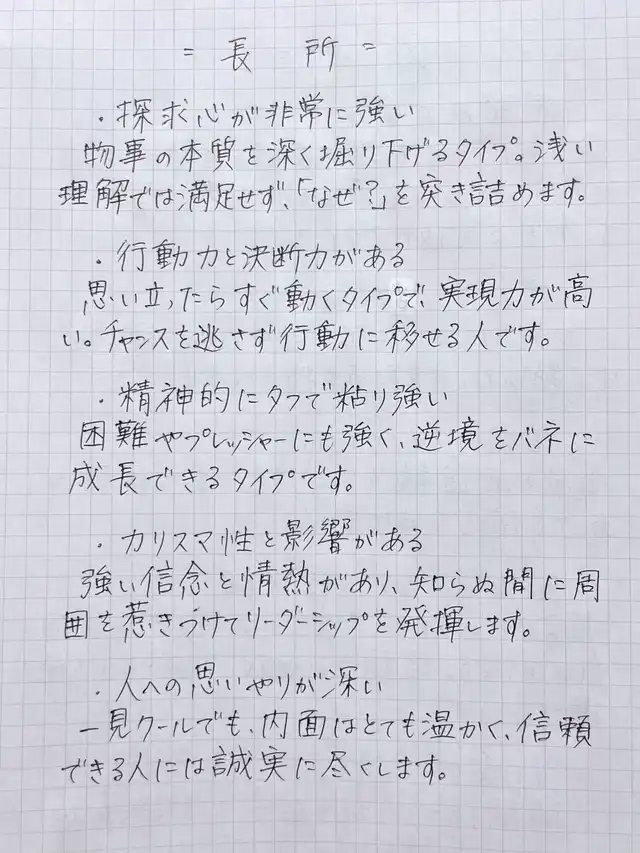 = 長 所 =
・探求心が非常に強い
物事の本質を深く掘り下げるタイプ。浅い
理解では満足せず、「なぜ?」を突き詰めます。
・行動力と決断力がある
思い立ったらすぐ動くタイプで、実現力が高
い。チャンスを逃さず行動に移せる人です。
・精神的にタフで粘り強い
困難やプレッシャーにも強く、逆境をバネに
成長できるタイプです。
・カリスマ性と影響がある
強い信念と情熱があり、知らぬ間に周
囲を惹きつけてリーダーシップを発揮します。
・人への思いやりが深い
一見クールでも、内面はとても温かく、信頼
できる人には誠実に尽くします。